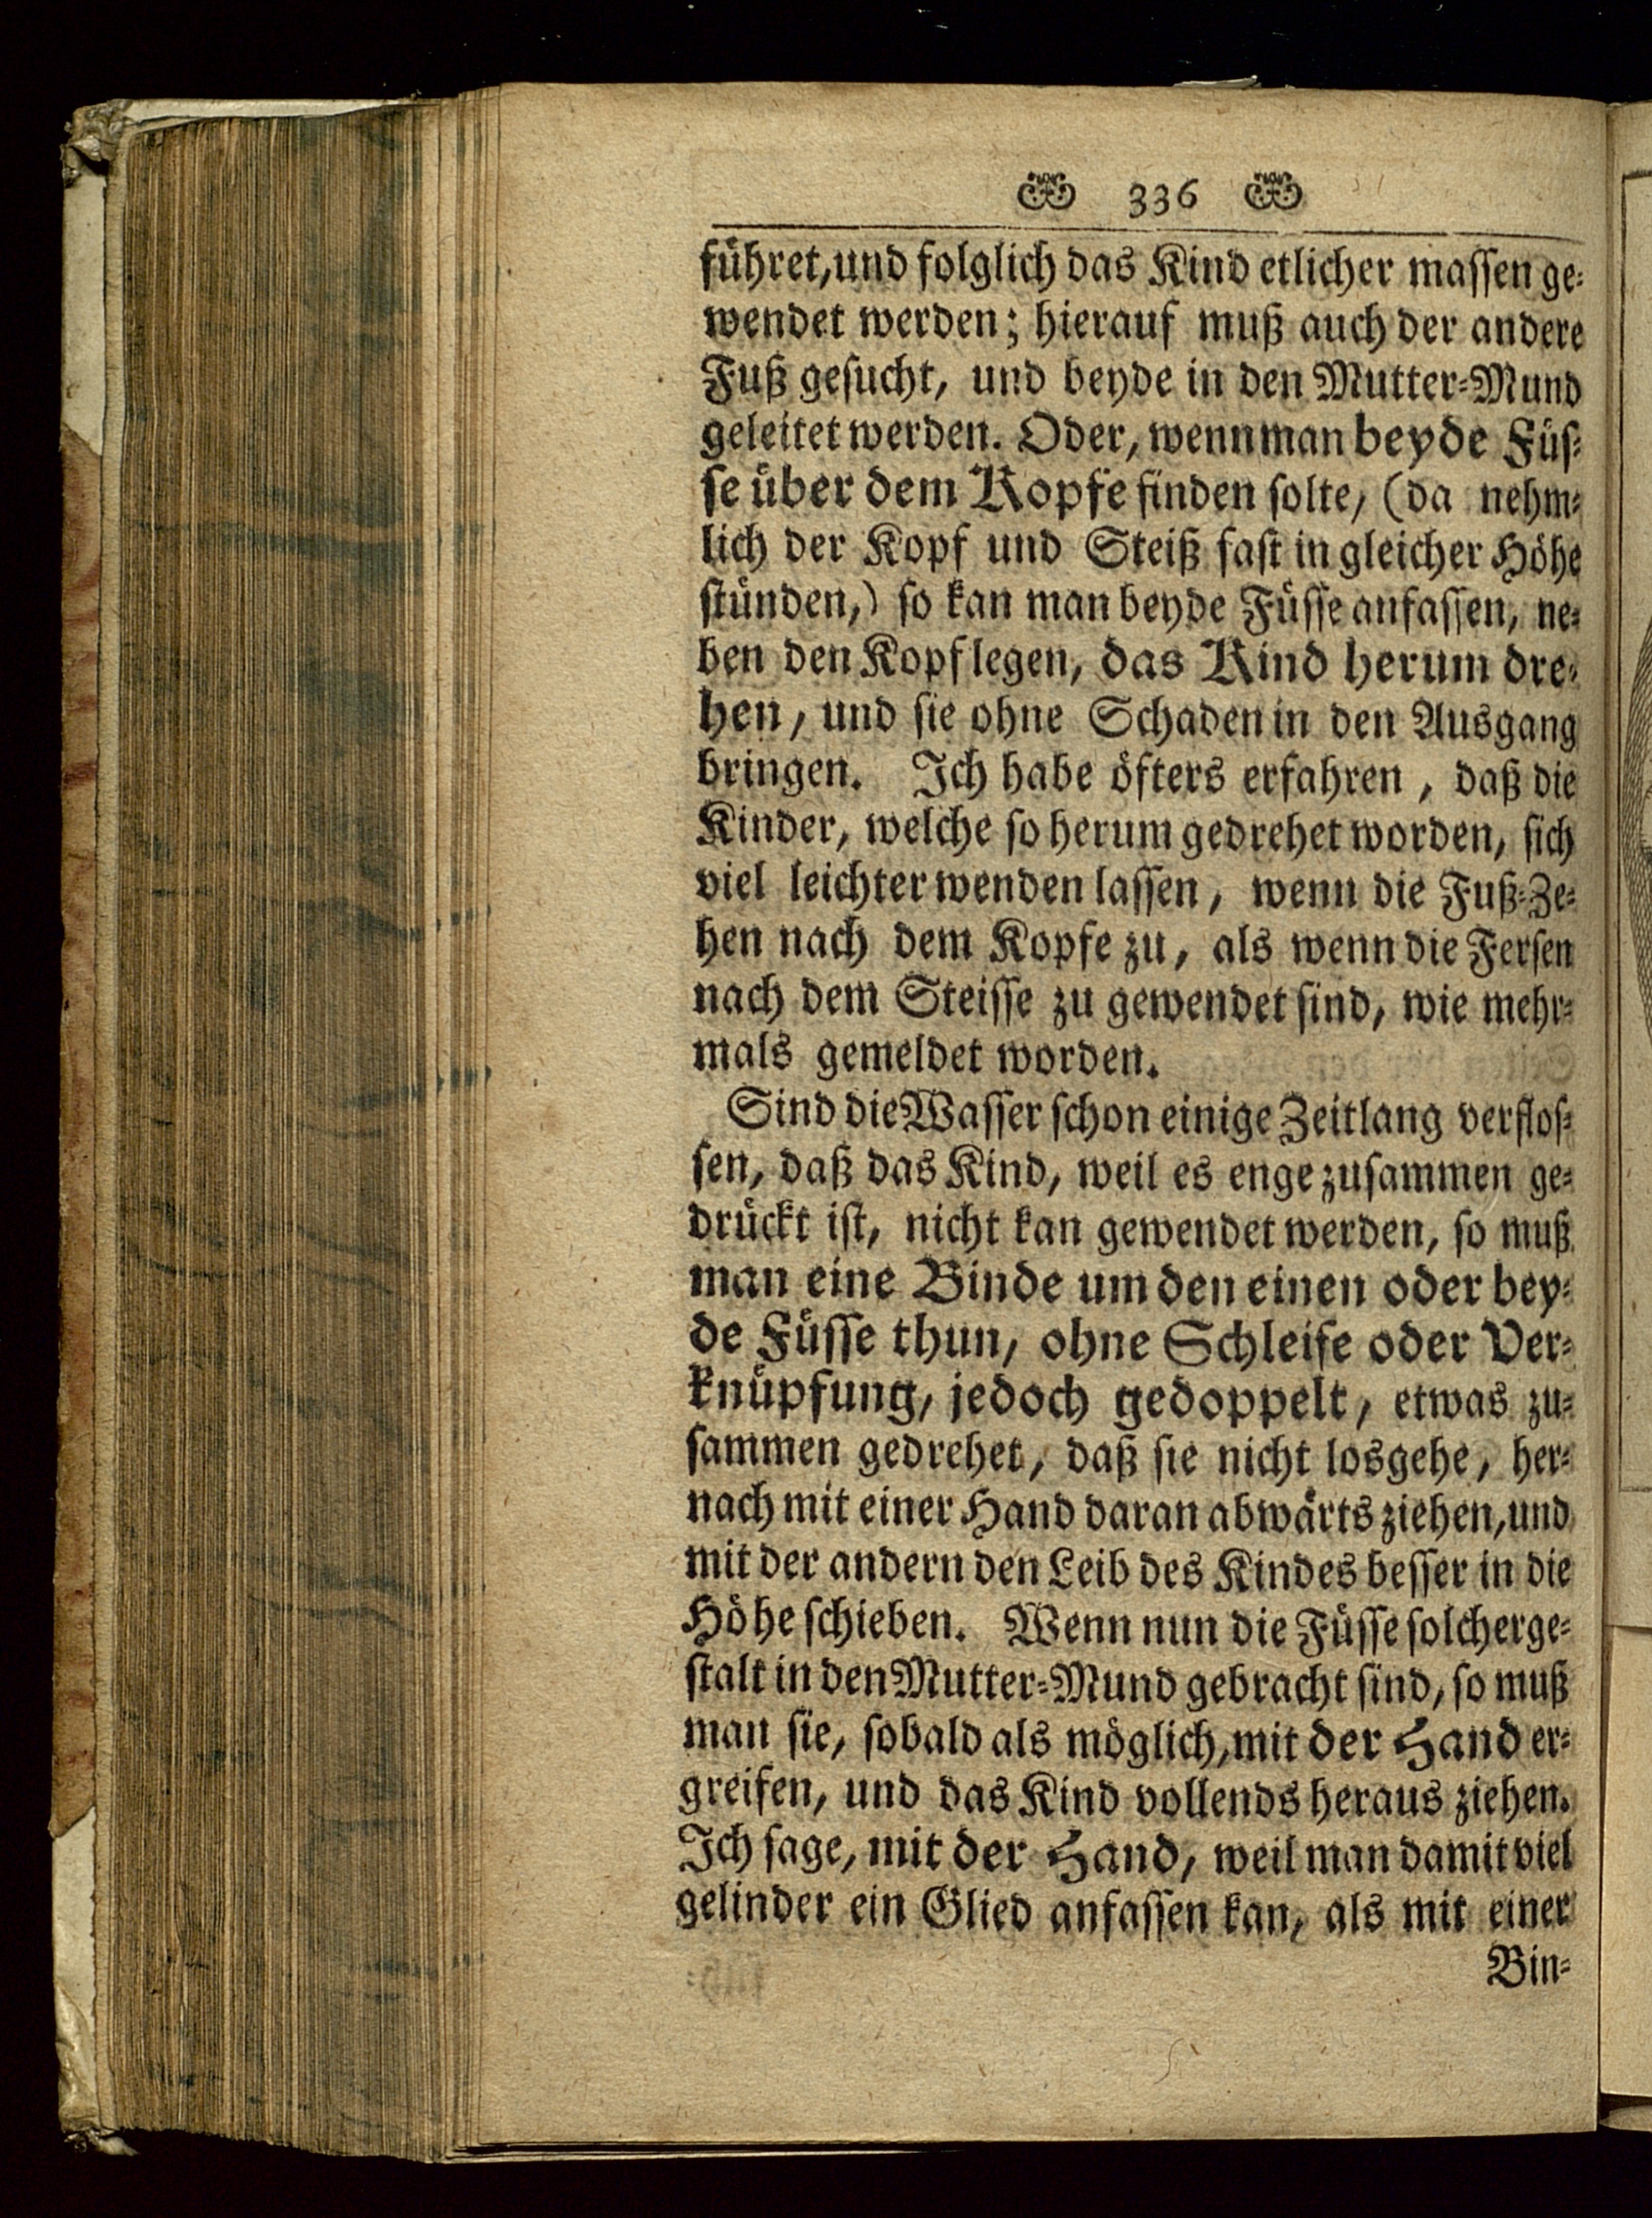 336
führet, und folglich das Kind etlicher massen ge-
wendet werden; hierauf muß auch der andere
Fuß gesucht, und beyde in den Mutter-Mund
geleitet werden. Oder, wenn man beyde Füs-
se über dem Kopfe finden solte, (da nehm-
lich der Kopf und Steiß fast in gleicher Höhe
stünden,) so kan man beyde Füsse anfassen, ne-
ben den Kopf legen, das Kind herum dre-
hen, und sie ohne Schaden in den Ausgang
bringen. Ich habe öfters erfahren, daß die
Kinder, welche so herum gedrehet worden, sich
viel leichter wenden lassen, wenn die Fuß-Ze-
hen nach dem Kopfe zu, als wenn die Fersen
nach dem Steisse zu gewendet sind, wie mehr-
mals gemeldet worden.
Sind die Wasser schon einige Zeitlang verflos-
sen, daß das Kind, weil es enge zusammen ge-
drückt ist, nicht kan gewendet werden, so muß
man eine Binde um den einen oder bey-
de Füsse thun, ohne Schleife oder Ver-
knüpfung, jedoch gedoppelt, etwas zu-
sammen gedrehet, daß sie nicht losgehe, her-
nach mit einer Hand daran abwärts ziehen, und
mit der andern den Leib des Kindes besser in die
Höhe schieben. Wenn nun die Füsse solcherge-
stalt in den Mutter-Mund gebracht sind, so muß
man sie, sobald als möglich, mit der Hand er-
greifen, und das Kind vollends heraus ziehen.
Ich sage, mit der Hand, weil man damit viel
gelinder ein Glied anfassen kan, als mit einer
Bin-